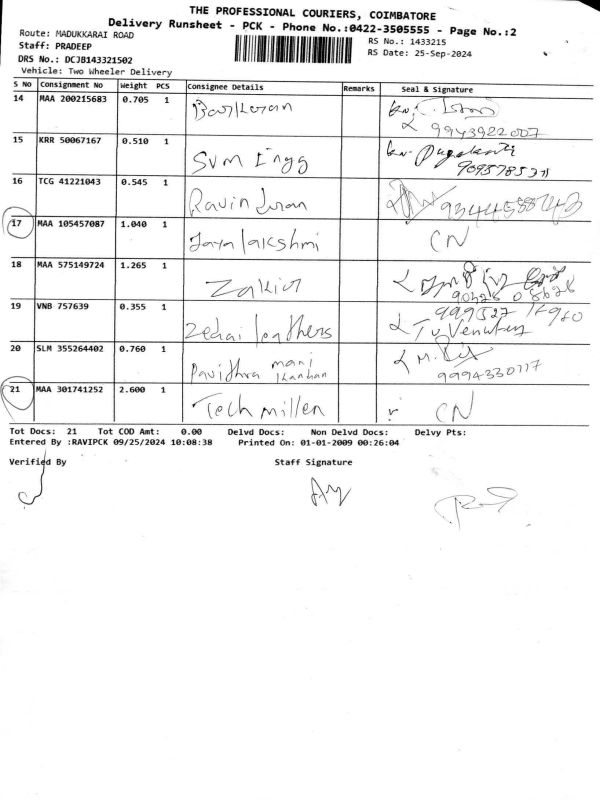 THE PROFESSIONAL COURIERS, COIMBATORE
Delivery Runsheet - PCK - Phone No.:0422-3505555 - Page No.:2
Route: MADUKKARAI ROAD
RS No.: 1433215
Staff: PRADEEP
RS Date: 25-Sep-2024
DRS No.: DCJB143321502
Vehicle: Two Wheeler Delivery
S No Consignment No Weight PCS Consignee Details Remarks Seal & Signature
14 MAA 200215683 0.705 1
9943922007
15 KRR 50067167 0.510 1 SVM Engg
9095785371
16 TCG 41221043 0.545 1
17 MAA 105457087 1.040 1 Jaya lakshmi CN
18 MAA 575149724 1.265 1 Zakir
19 VNB 757639 0.355 1
20 SLM 355264402 0.760 1 Pavithra mani
9994330117
21 MAA 301741252 2.600 1 Tech millen CN
Tot Docs: 21 Tot COD Amt: 0.00 Delvd Docs: Non Delvd Docs: Delvy Pts:
Entered By :RAVIPCK 09/25/2024 10:08:38 Printed On: 01-01-2009 00:26:04
Verified By Staff Signature